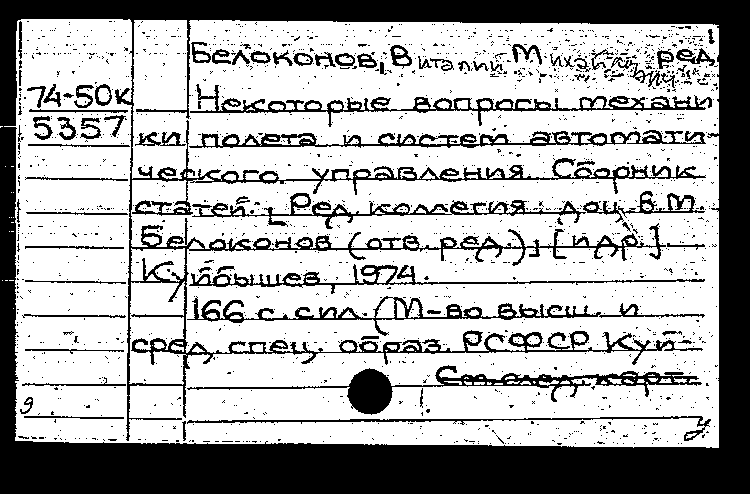 1
Белоконов, Виталий Михайлович, ред.
74-50к Некоторые вопросы механи-
5357 ки полета и систем автомати-
ческого управления. Сборник
статей. [Ред. коллегия: доц. В.М.
Белоконов (отв. ред.)] [и др.]
Куйбышев, 1974.
166 с. с ил. (М-во высш. и
сред. спец. образ. РСФСР. Куй-
См. след. карт.
9
у